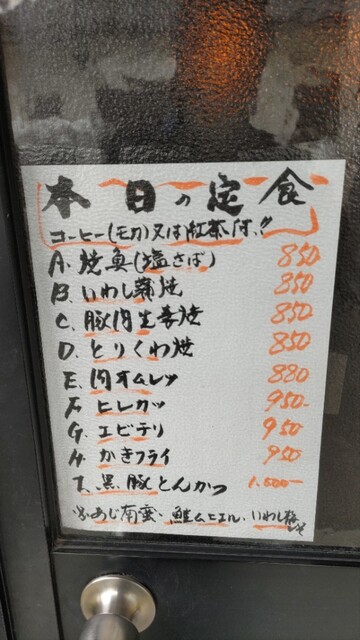 本日の定食
コーヒー(モカ)又は紅茶付!!
A. 焼魚(塩さば) 850
B. いわし蒲焼 850
C. 豚肉生姜焼 850
D. とりくわ焼 850
E. 肉オムレツ 880
F. ヒレカツ 950-
G. エビチリ 950
H. かきフライ 950
I. 黒豚とんかつ 1,000-
あじ南蛮、鮭ムニエル、いわし梅しそ